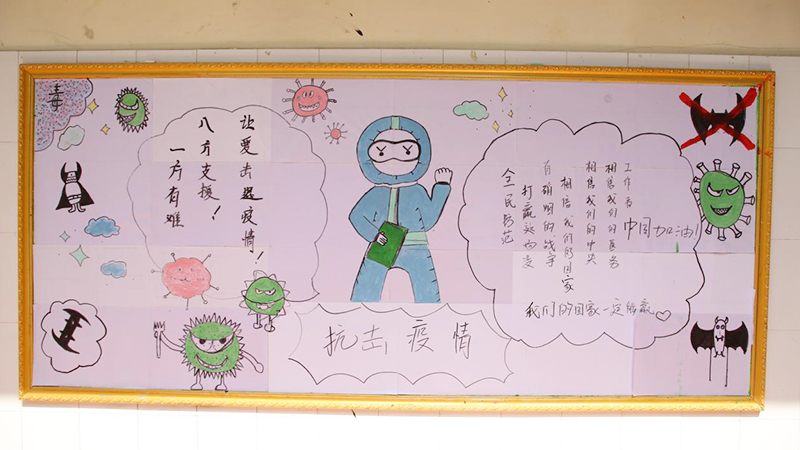 毒
一方有难
八方支援！
让爱击退疫情！
抗击疫情
全民防范
打赢这
相信我们的国家
相信我们的中央
相信我们的医务
工作者
中国加油！
我们的国家一定能赢